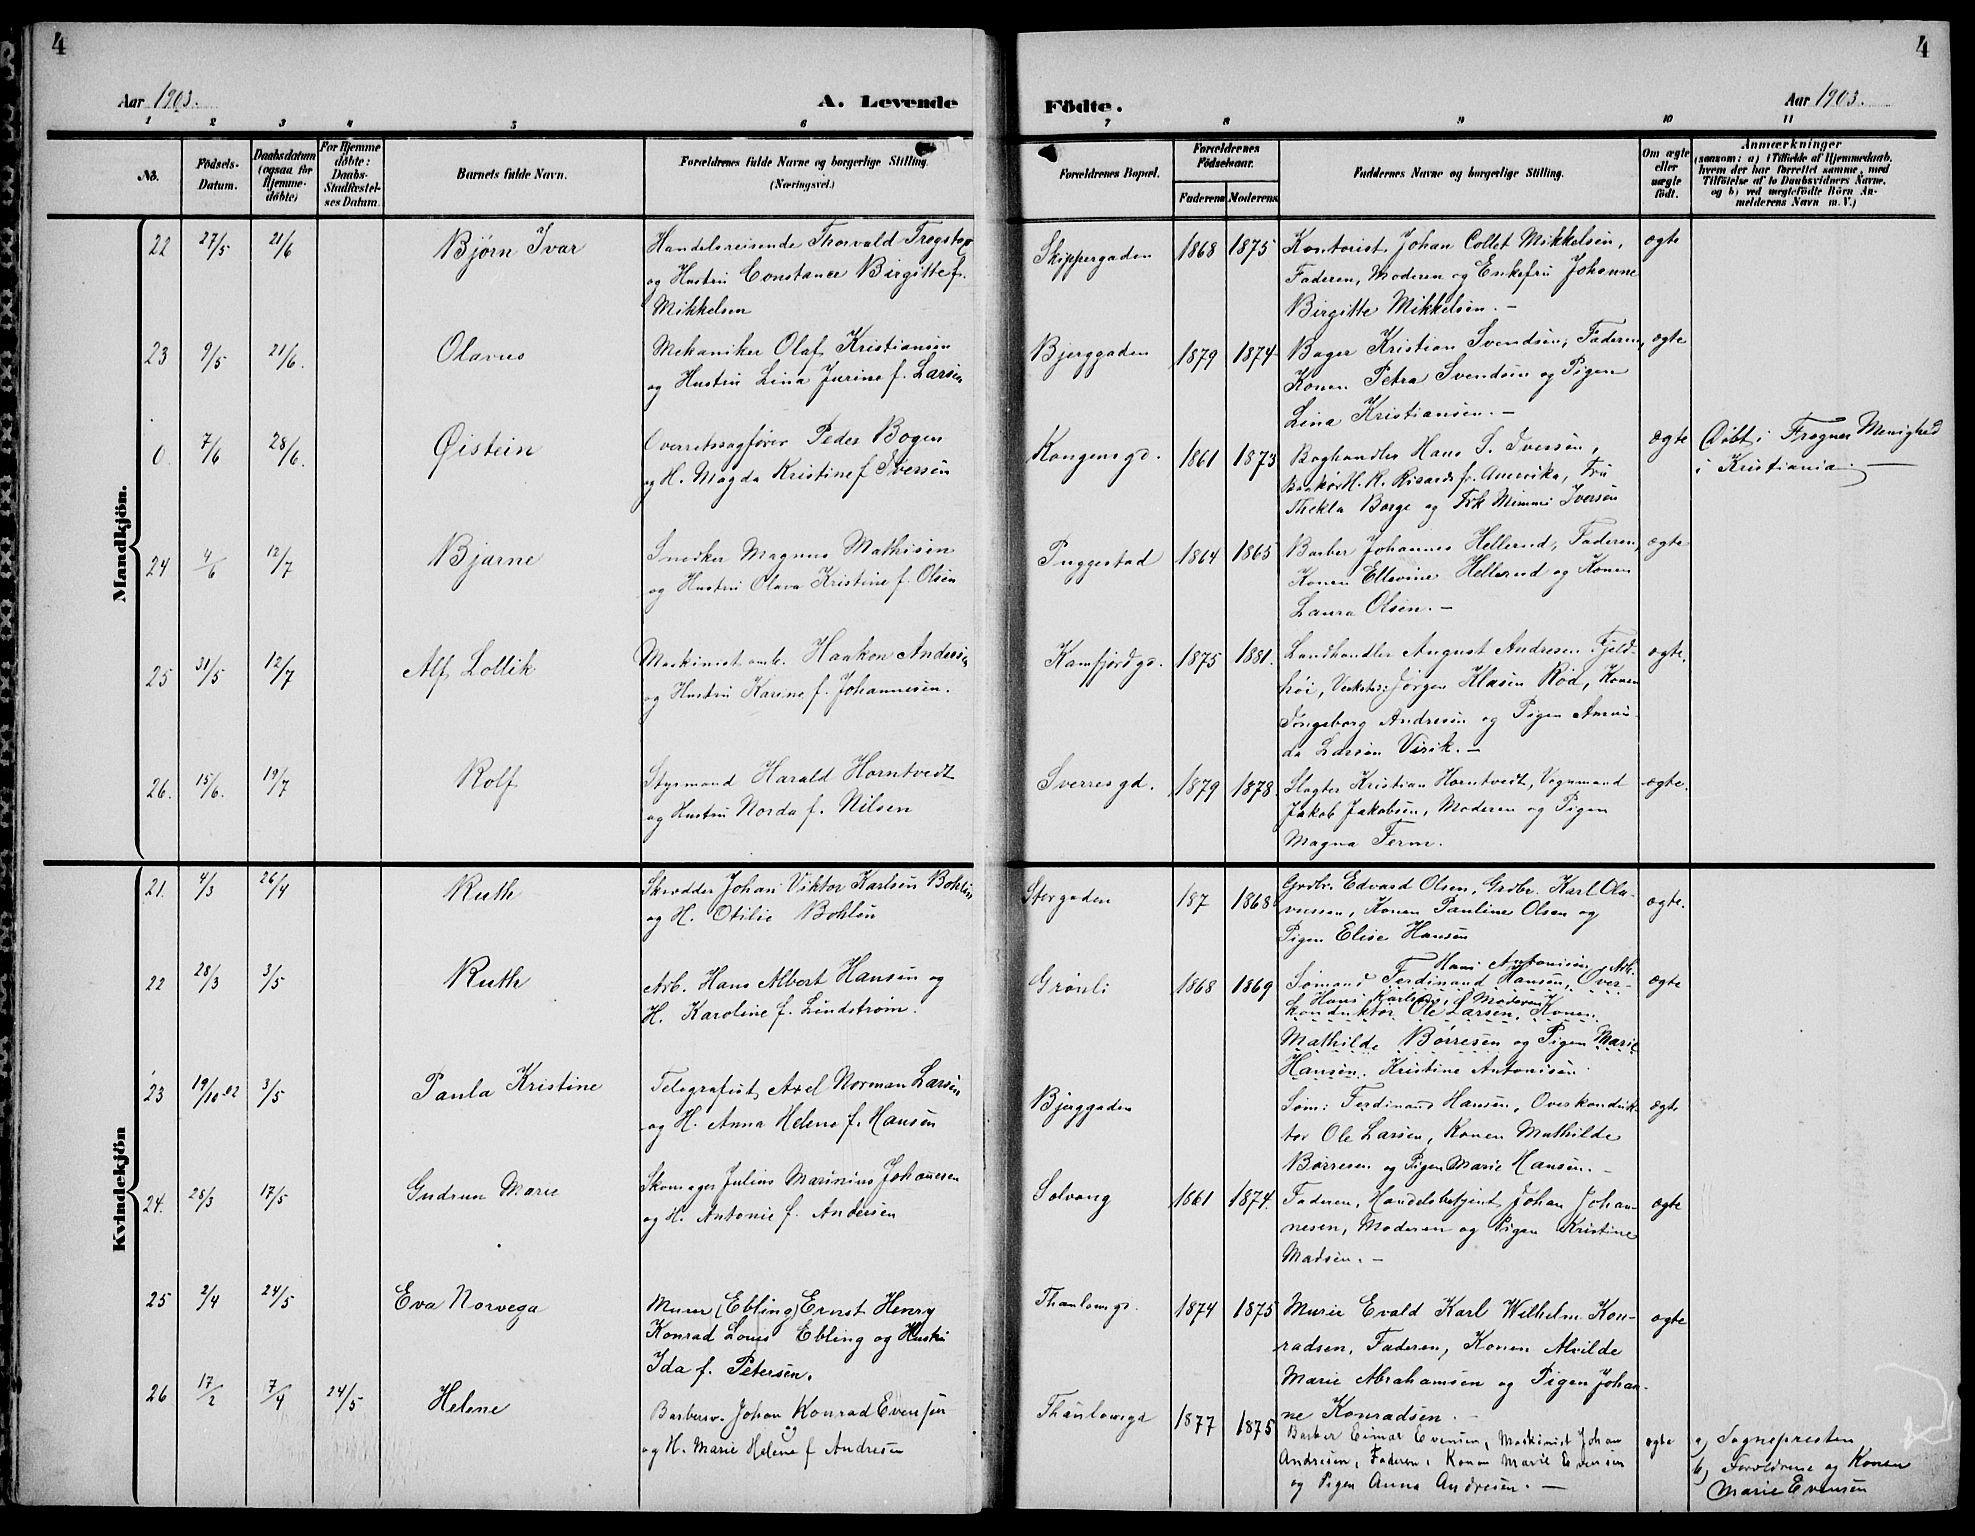 4
Aar 1903.
A. Levende
1 2 3 4 5 6
No. Födsels-Datum. Daabsdatum (ogsaa for Hjemme-døbte) For Hjemme døbte: Daabs-Stadfæstel-ses Datum. Barnets fulde Navn. Forældrenes fulde Navne og borgerlige Stilling. (Næringsvei.)
Mandkjön.
22 27/5 21/6 Bjørn Ivar Handelsreisende Thorvald Trøgstad
og Hustru Constance Birgitte f.
Mikkelsen
23 9/5 21/6. Olavus Mekaniker Olaf Kristiansen
og Hustru Lina Jurine f. Larsen
0. 7/6 28/6. Øistein Overretssagfører Peder Bogen
og H. Magda Kristine f Iversen
24 4/6 12/7 Bjarne Snedker Magnus Mathisen
og Hustru Olava Kristine f. Olsen
25 31/5 12/7 Alf Lollik Maskinist amb. Haakon Andersen
og Hustru Karine f. Johannesen.
26. 15/6. 19/7 Rolf Styrmand Harald Horntvedt
og Hustru Norda f. Nilsen
Kvindekjön
21. 4/3 26/4 Ruth Skrædder Johan Viktor Karlsen Bohlin
og H. Otilie Bohlin
22 28/3 3/5 Ruth Arb. Hans Albert Hansen og
H. Karoline f. Lindstrøm.
23 19/10.02 3/5 Paula Kristine Telegrafist Axel Norman Larsen
og H. Anna Helene f. Hansen
24. 28/3 17/5 Gudrun Marie Skomager Julius Marinius Johannesen
og H. Antonie f. Andersen
25 2/4 24/5 Eva Norvega Murer (Ebling) Ernst Henry
Konrad Louis Ebling og Hustru
Ida f. Petersen.
26 17/2 7/4 24/5 Helene Barbersv. Johan Konrad Evensen
og H. Marie Helene f Andresen
4
Födte.
Aar 1903.
7 8 9 10 11
Forældrenes Bopæl. Forældrenes Födselsaar. Faderens Moderens Faddernes Navne og borgerlige Stilling. Om ægte eller uægte födt. Anmærkninger
(saasom: a) i Tilfælde af Hjemmedaab, hvem der har forrettet samme, med Tilföielse af to Daabsvidners Navne, og b) ved uægtefödte Börn Anmelderens Navn m. V.)
Skippergaden 1868 1875 Kontorist Johan Collet Mikkelsen, ægte
Faderen, Moderen og Enkefru Johanne
Birgitte Mikkelsen. –
Bjerggaden 1879 1874 Bager Kristian Svendsen, Faderen, ægte
Konen Petra Svendsen og Pigen
Lina Kristiansen. –
Kongensgd. 1861 1873 Boghandler Hans I. Iversen, ægte Døbt i Frogner Menighed
H. R. Ricards fr. Amerika, Fru i Kristiania. –
Thekla Borge og Frk Mimmi Iversen
Puggestad 1864 1865 Barber Johannes Hellerud, Faderen, ægte
Konen Ellevine Hellerud og Konen
Laura Olsen. –
Kamfjordgd. 1875 1881. Landhandler August Andresen Fjeld- ægte.
høi, Verkstar: Jørgen Klasen Rød, Konen
Ingeborg Andresen og Pigen Aman-
da Larsen Virik. –
Sverresgd. 1879 1878. Slagter Kristian Horntvedt, Vognmand ægte.
Jakob Jakobsen, Moderen og Pigen
Magna Ferm.
Storgaden 187 1868 Grdbr. Edvard Olsen, Grdbr. Karl Ola- ægte.
vessen, Konen Pauline Olsen og
Pigen Elise Hansen
Hans Antonisen Arb.
Grønli 1868 1869 Sømand Ferdinand Hansen, Over- ægte
Hans Karlsen, Moderen, K
konduktør Ole Larsen, Konen
Mathilde Børresen og Pigen Marie
Hansen. Kristine Antonisen.
Bjerggaden Søm: Ferdinand Hansen, Overkonduk- ægte
tør Ole Larsen, Konen Mathilde
Børresen og Pigen Marie Hansen. –
Solvang 1861 1874. Faderen, Handelsbetjent Johan Johan- ægte
nesen, Moderen og Pigen Kristine
Madsen. –
Thaulowgd. 1874 1875 Murer Evald Karl Wilhelm Kon- ægte
radsen, Faderen, Konen Alvilde
Marie Abrahamsen og Pigen Johan-
ne Konradsen. –
Thaulowgd 1877 1875 Barber Einar Evensen, Maskinist Johan ægte a) Sognepresten
Andresen, Faderen, Konen Marie Evensen b) Forældrene og Konen
og Pigen Anna Andresen. – Marie Evensen